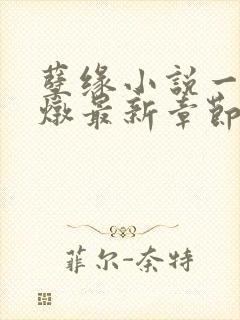 孽缘小説一
燉最新章節
菲尔-奈特